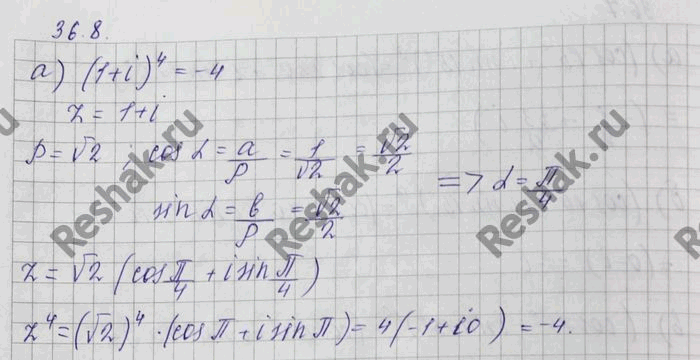 36.8.
а) (1+i)⁴ = -4
z = 1+i
ρ = √2 ; cos α = a/ρ = 1/√2 = √2/2
sin α = b/ρ = √2/2 => α = π/4
z = √2 (cos π/4 + i sin π/4)
z⁴ = (√2)⁴ · (cos π + i sin π) = 4(-1 + i0) = -4.
Reshak.ru
Reshak.ru
Reshak.ru
Reshak.ru